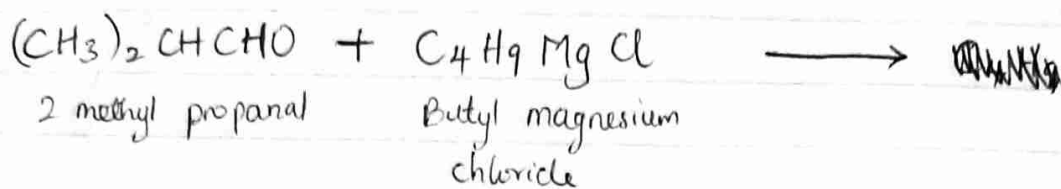 (CH₃)₂ CHCHO + C₄ H₉ Mg Cl ⟶
2 methyl propanal Butyl magnesium
chloride